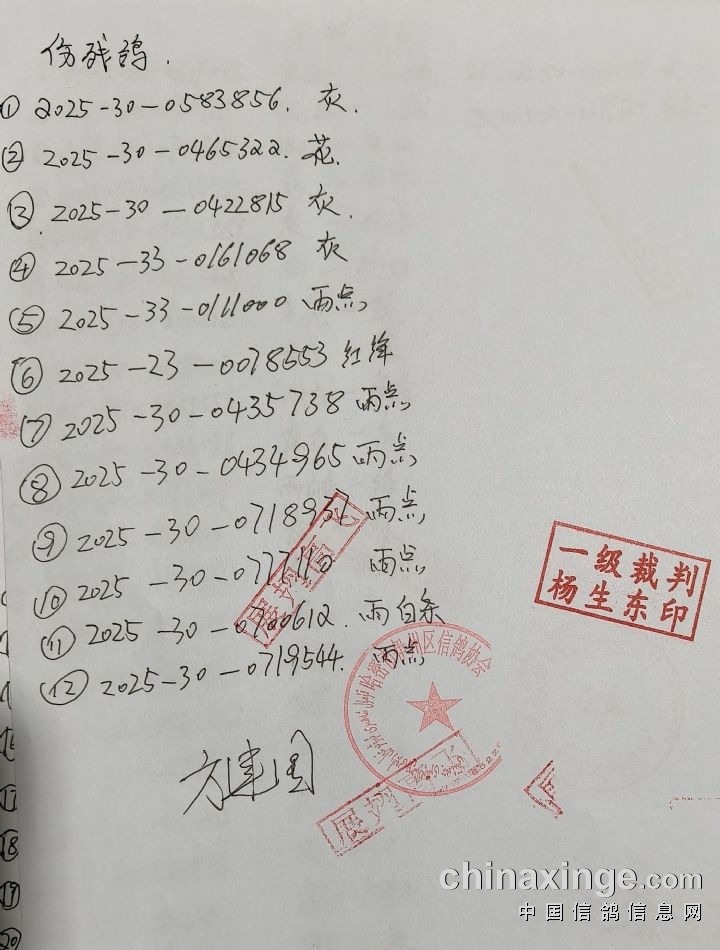 伤残鸽.
① 2025-30-0583856. 灰.
② 2025-30-0465322. 花.
③ 2025-30-0422815 灰.
④ 2025-33-0161068 灰
⑤ 2025-33-0111000 雨点
⑥ 2025-23-0078553 红绛
⑦ 2025-30-0435738 雨点
⑧ 2025-30-0434965 雨点
⑨ 2025-30-07189 雨点
⑩ 2025-30-0 雨点
⑪ 2025-30-0720612. 雨白条
⑫ 2025-30-0719544. 雨点
一级裁判
杨生东印
哈密 州区信鸽协会
方建国
16
17
18
19
20
chinaxinge.com
中国信鸽信息网